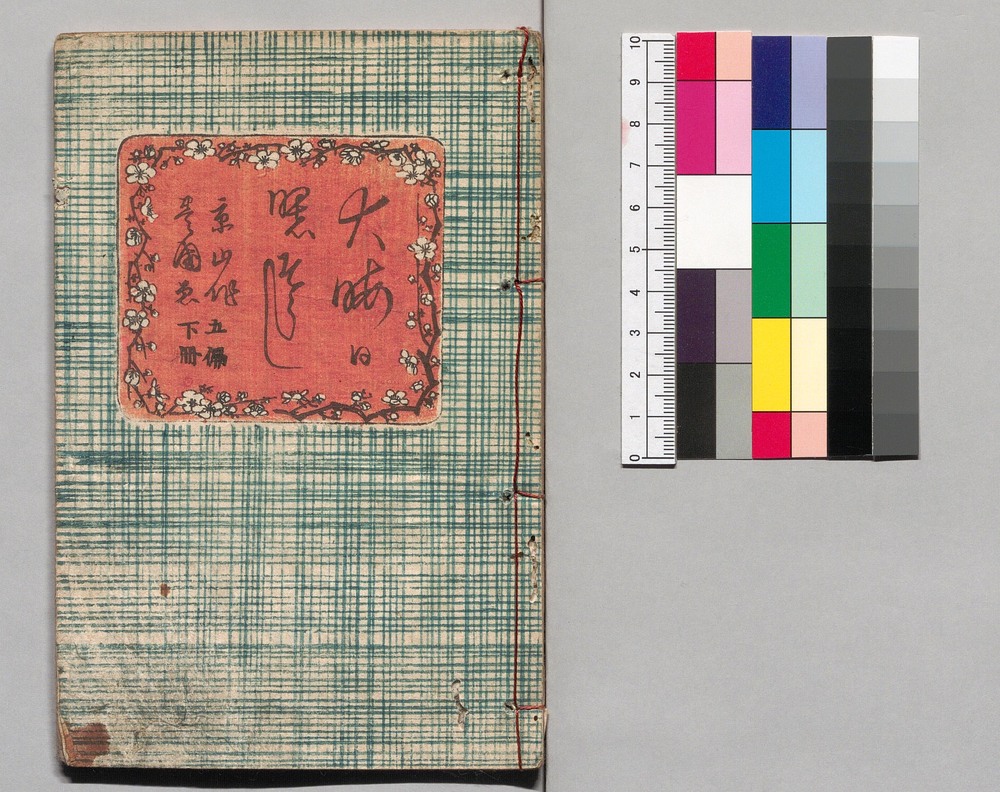 大晦日
曙
京山作 五編
豊國画 下冊
10
9
8
7
6
5
4
3
2
1
0